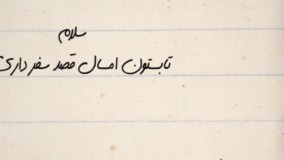 سلام
تابستون امسال قصد سفر داری